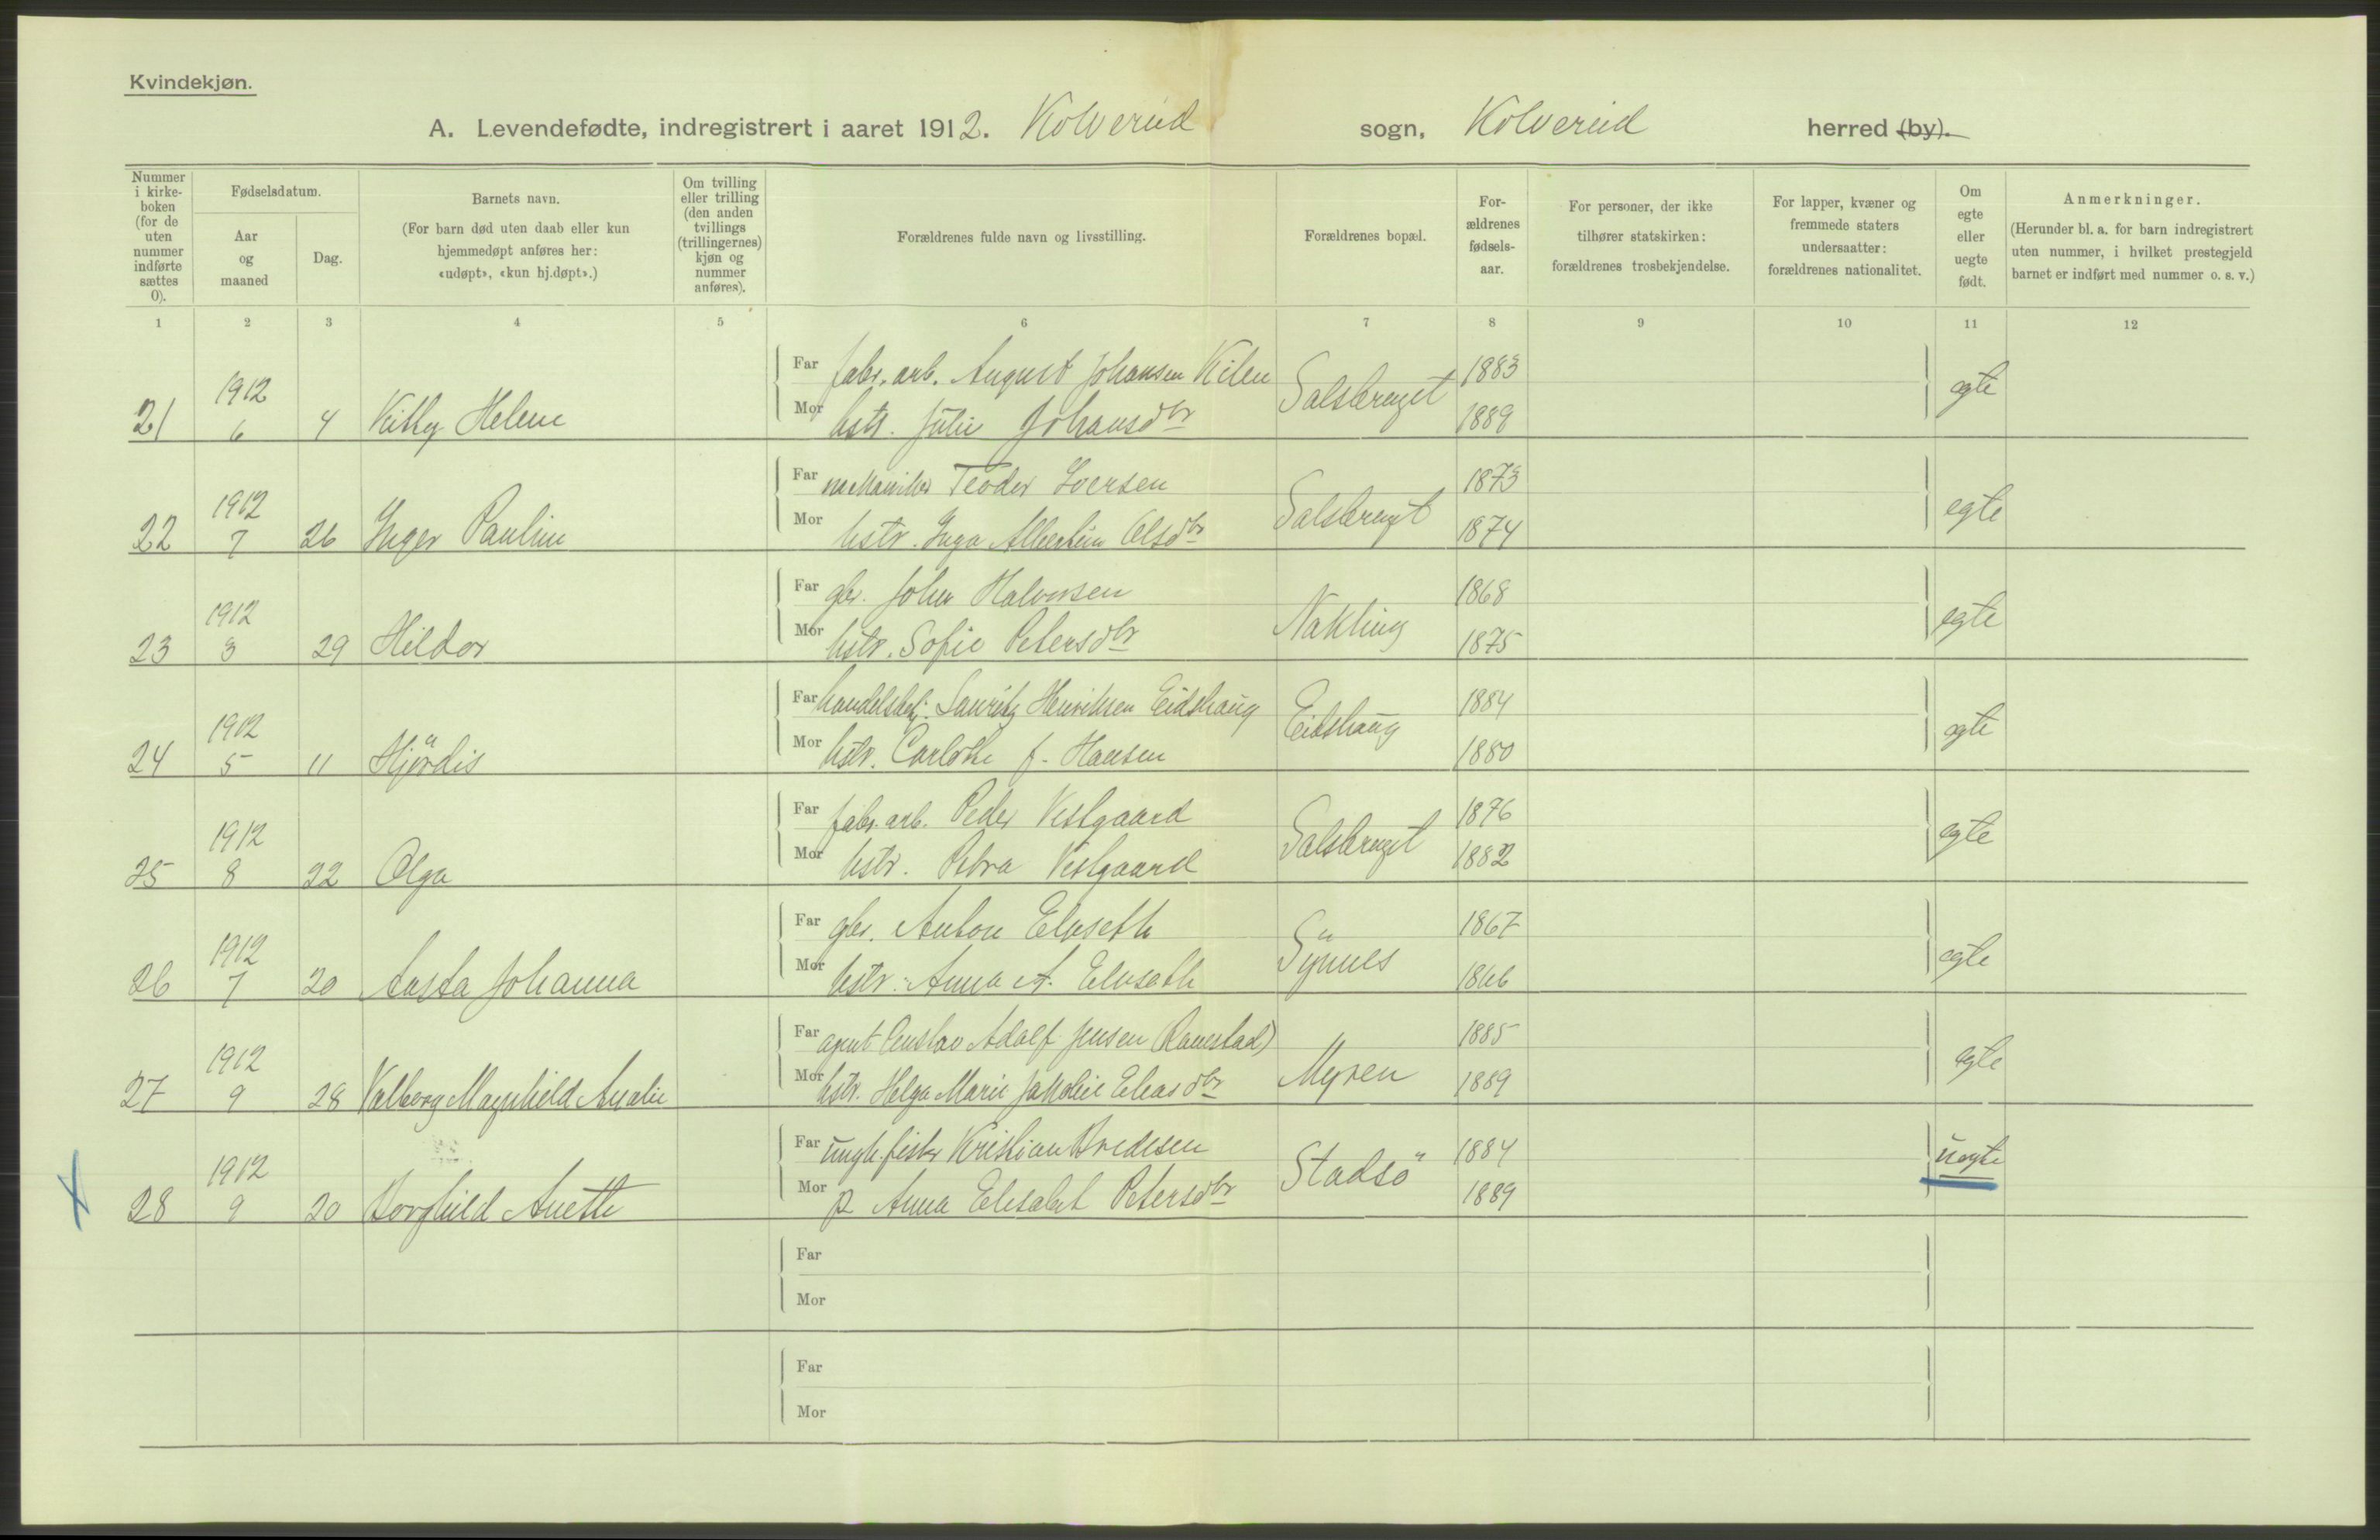 Kvindekjøn.
A. Levendefødte, indregistrert i aaret 1912. Kolvereid sogn, Kolvereid herred (by).
Nummer i kirkeboken (for de uten nummer indførte sættes 0).
Fødselsdatum.
Aar og maaned
Dag.
Barnets navn.
(For barn død uten daab eller kun hjemmedøpt anføres her: «udøpt», «kun hj.døpt».)
Om tvilling eller trilling (den anden tvillings (trillingernes) kjøn og nummer anføres).
Forældrenes fulde navn og livsstilling.
Forældrenes bopæl.
For-ældrenes fødsels-aar.
For personer, der ikke tilhører statskirken: forældrenes trosbekjendelse.
For lapper, kvæner og fremmede staters undersaatter: forældrenes nationalitet.
Om egte eller uegte født.
Anmerkninger.
(Herunder bl. a. for barn indregistrert uten nummer, i hvilket prestegjeld barnet er indført med nummer o. s. v.)
1 2 3 4 5 6 7 8 9 10 11 12
Far fabr. arb. August Johansen Kilen 1883
21 1912 6 4 Kitty Helene Salsbruget egte
Mor hstr. Julie Johansdtr 1889
Far mekaniker Teodor Iversen 1873
22 1912 7 26 Inger Pauline Salsbruget egte
Mor hstr. Inga Albertine Olsdtr 1874
Far gbr. Johan Halvorsen 1868
23 1912 3 29 Hildor Nakling egte
Mor hstr. Sofie Petersdtr 1875
Far handelsbetj. Lauritz Henriksen Eidshaug 1884
24 1912 5 11 Hjördis Eidshaug egte
Mor hstr. Carlotte f. Hansen 1880
Far fabr. arb. Peder Vestgaard 1876
25 1912 8 22 Olga Salsbruget egte
Mor hstr. Petra Vestgaard 1882
Far gbr. Anton Elveseth 1867
26 1912 7 20 Aasta Johanna egte
Mor hstr. Anna A. Elveseth 1866
Far agent Gustav Adolf Jensen (Ranestad) 1885
27 1912 9 28 Valborg Magnhild Amalie Myren egte
Mor hstr. Helga Marie Jakobie Eliasdtr 1889
Far ungk. fisker Kristian Bredesen 1884
28 1912 9 20 Borghild Anette Stadsö uegte
Mor p. Anna Elisabet Petersdtr 1889
Far
Mor
Far
Mor